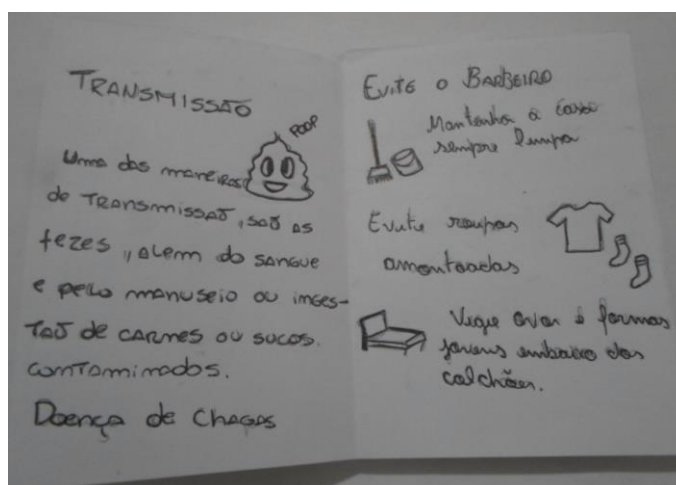 TRANSMISSÃO
POOP
Uma das maneiras
de TRANSMISSÃO, SÃO AS
fezes, , Alem do SANGUE
e pelo manuseio ou inges-
TÃO de CARNES ou sucos.
contaminados.
Doença de CHAGAS
EVITE O BARBEIRO
Mantenha a casa
sempre limpa
Evite roupas
amontoadas
Vege ovos e formas
jovens embaixo dos
colchões.